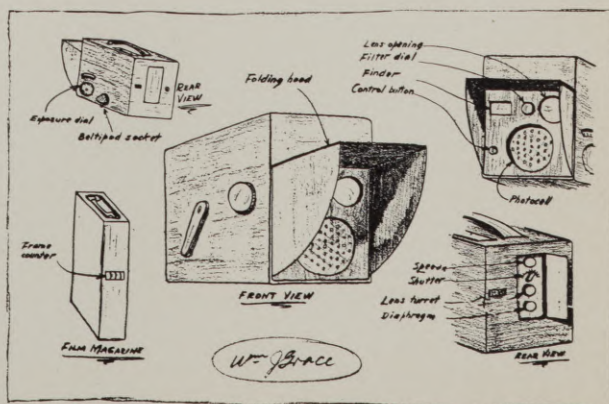 REAR
VIEW
Exposure dial
Beltipod socket
Folding hood
Lens opening
Filter dial
Finder
Control button
Photocell
Frame
counter
FILM MAGAZINE
FRONT VIEW
Wm J Grace
Speeds
Shutter
Lens turret
Diaphragm
REAR VIEW